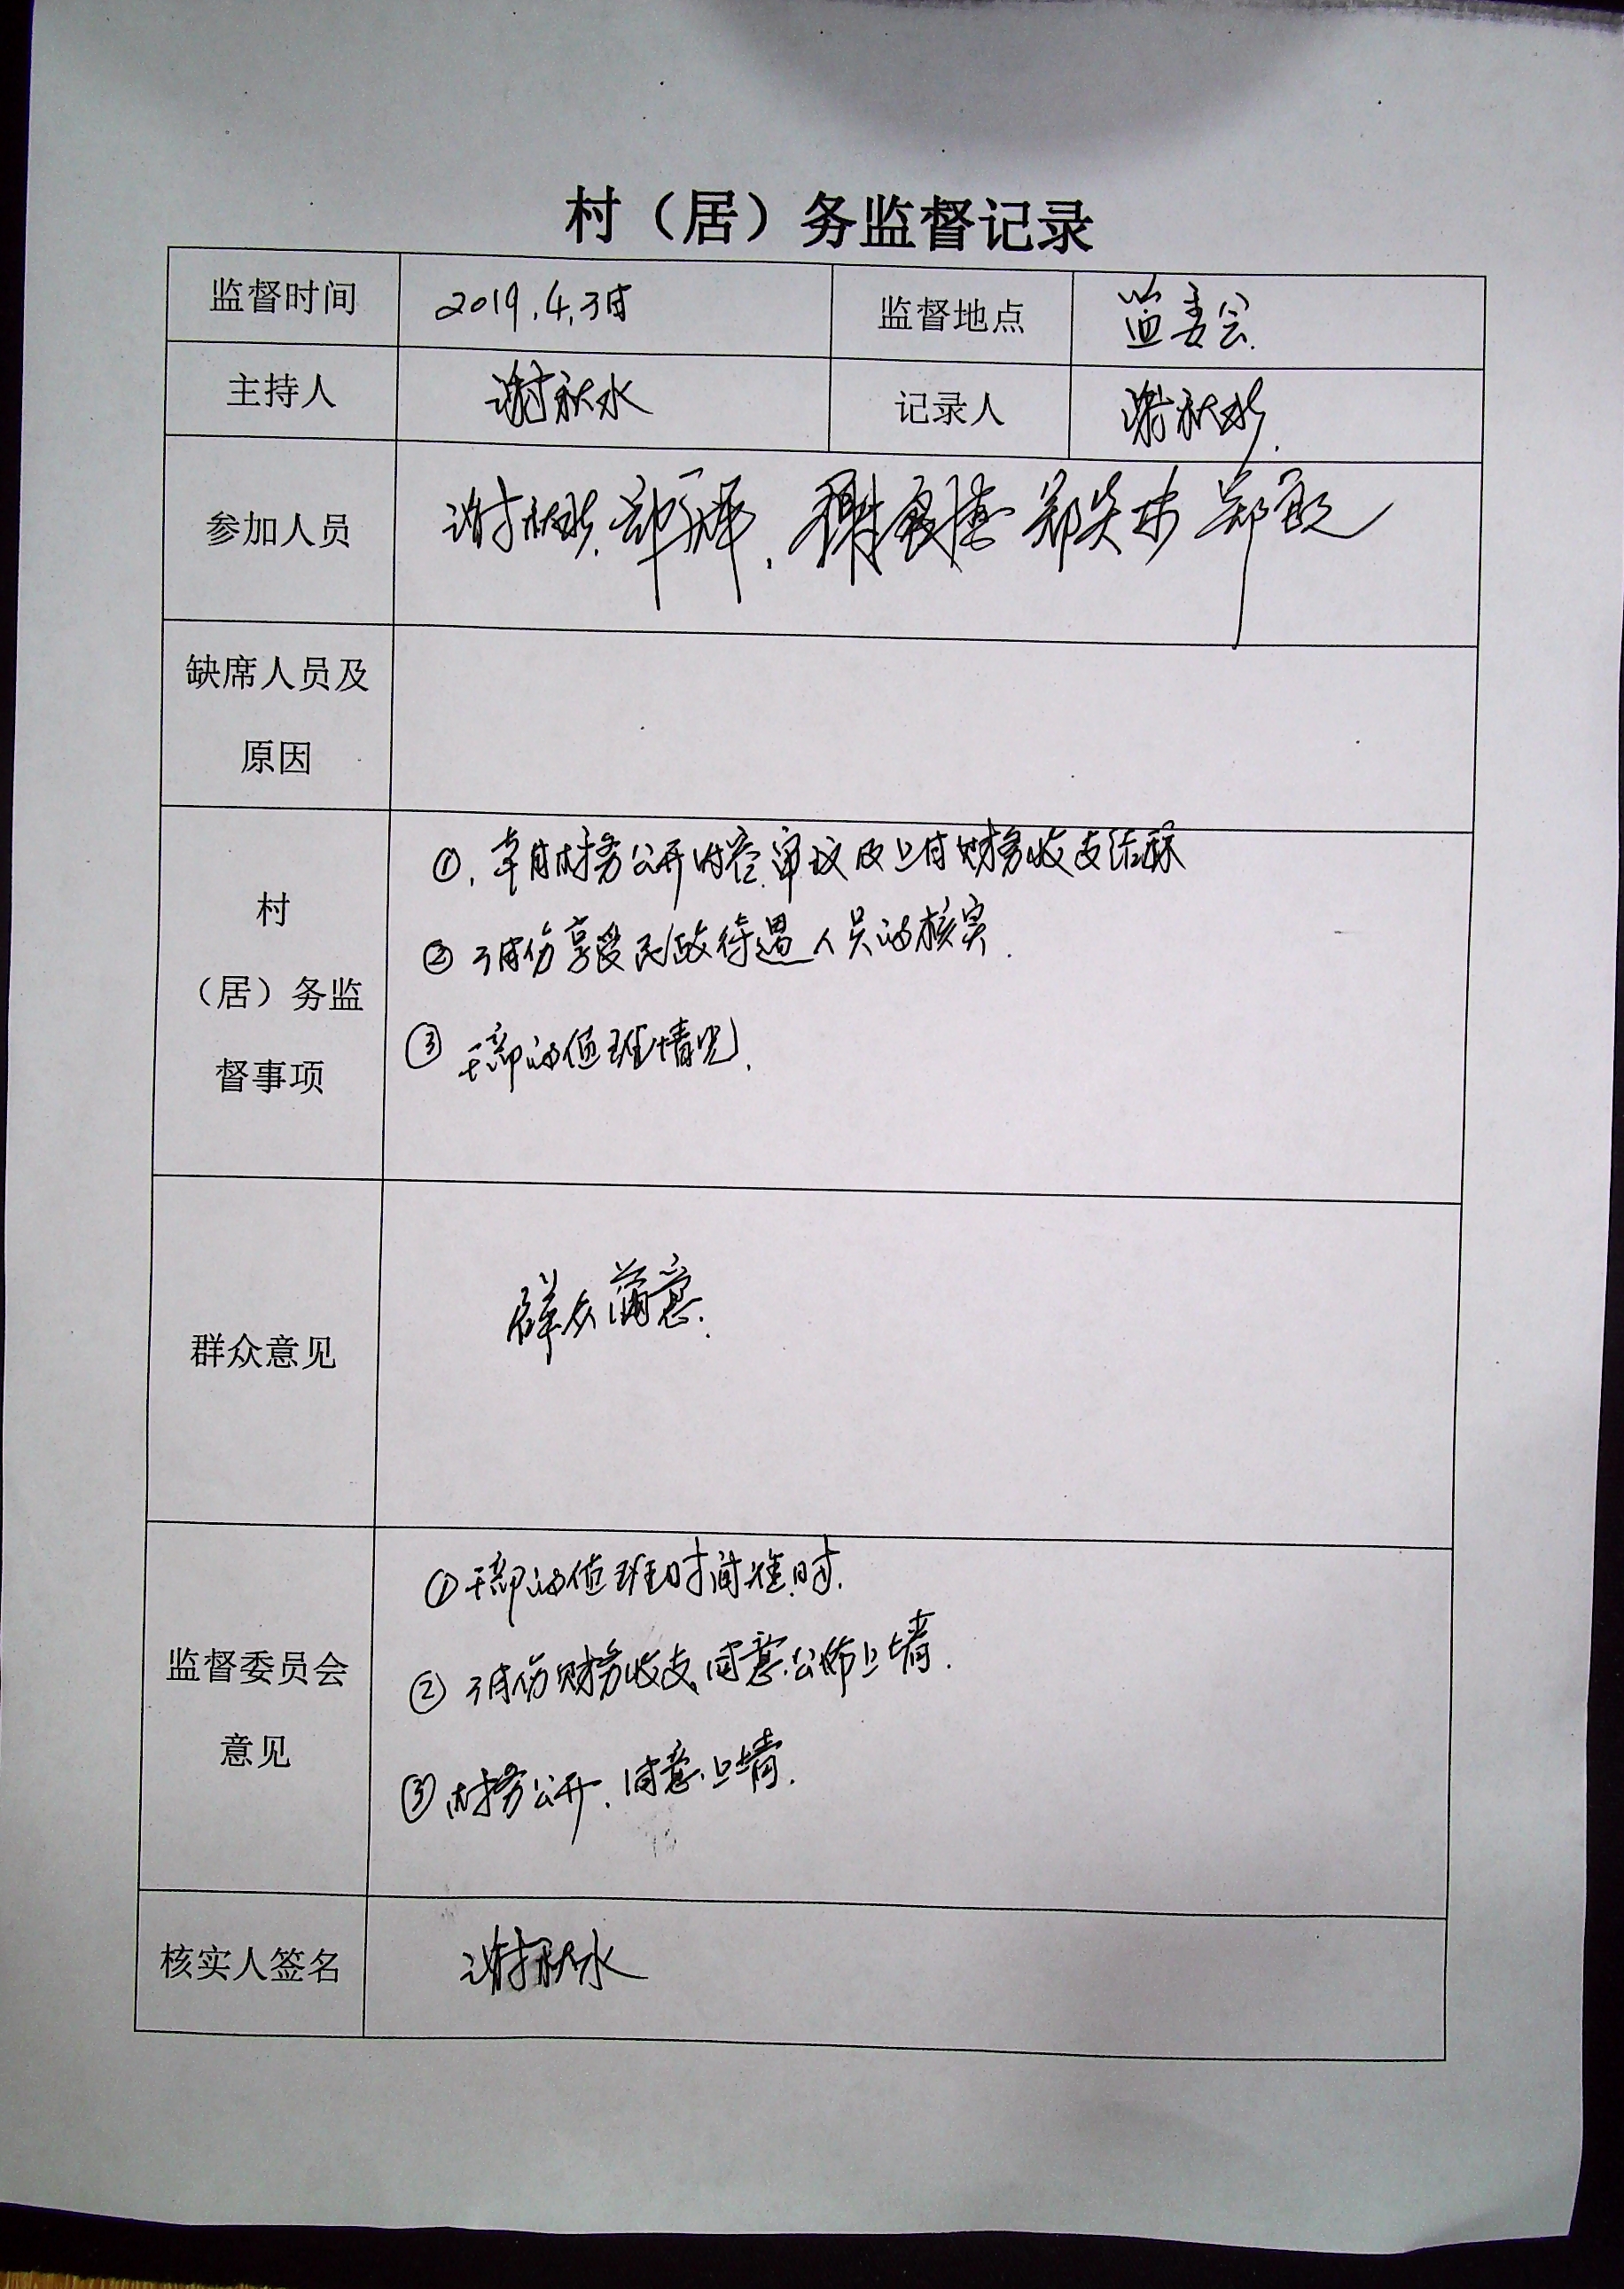 村（居）务监督记录
监督时间 2019.4.3日 监督地点 监委会.
主持人 谢秋水 记录人 谢秋水.
参加人员 谢秋水.郑 谢 郑 郑
缺席人员及
原因
①.本月村务公开内容审议及上月财务收支
②3月份享受民政待遇人员的核实.
村
（居）务监
督事项
③干部的值班情况.
群众意见 群众满意.
①干部的值班时间准时.
监督委员会
②3月份财务收支,同意公布上墙.
意见
③村务公开.同意上墙.
核实人签名 谢秋水